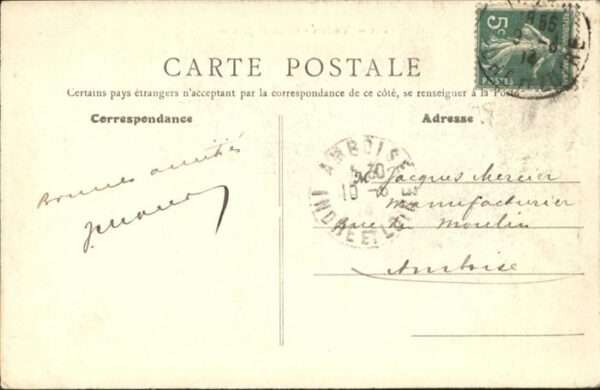 5c
CARTE POSTALE
Certains pays étrangers n'acceptant par la correspondance de ce côté, se renseigner à la Poste
Correspondance
Adresse
Bonnes amitiés
AMBOISE
INDRE ET LOIRE
M. Jacques Mercier
Manufacturier
Rue du Moulin
Amboise